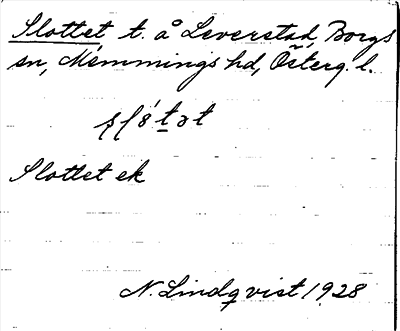 Slottet t. å Leverstad, Borgs
sn, Memmings hd, Österg. l.
Slottet ek
N. Lindqvist 1928